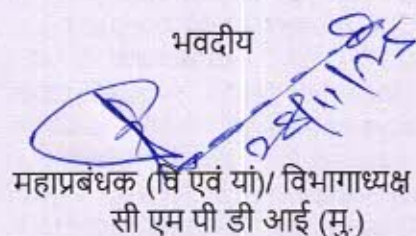 भवदीय
28/11/25
महाप्रबंधक (वि एवं यां)/ विभागाध्यक्ष
सी एम पी डी आई (मु.)